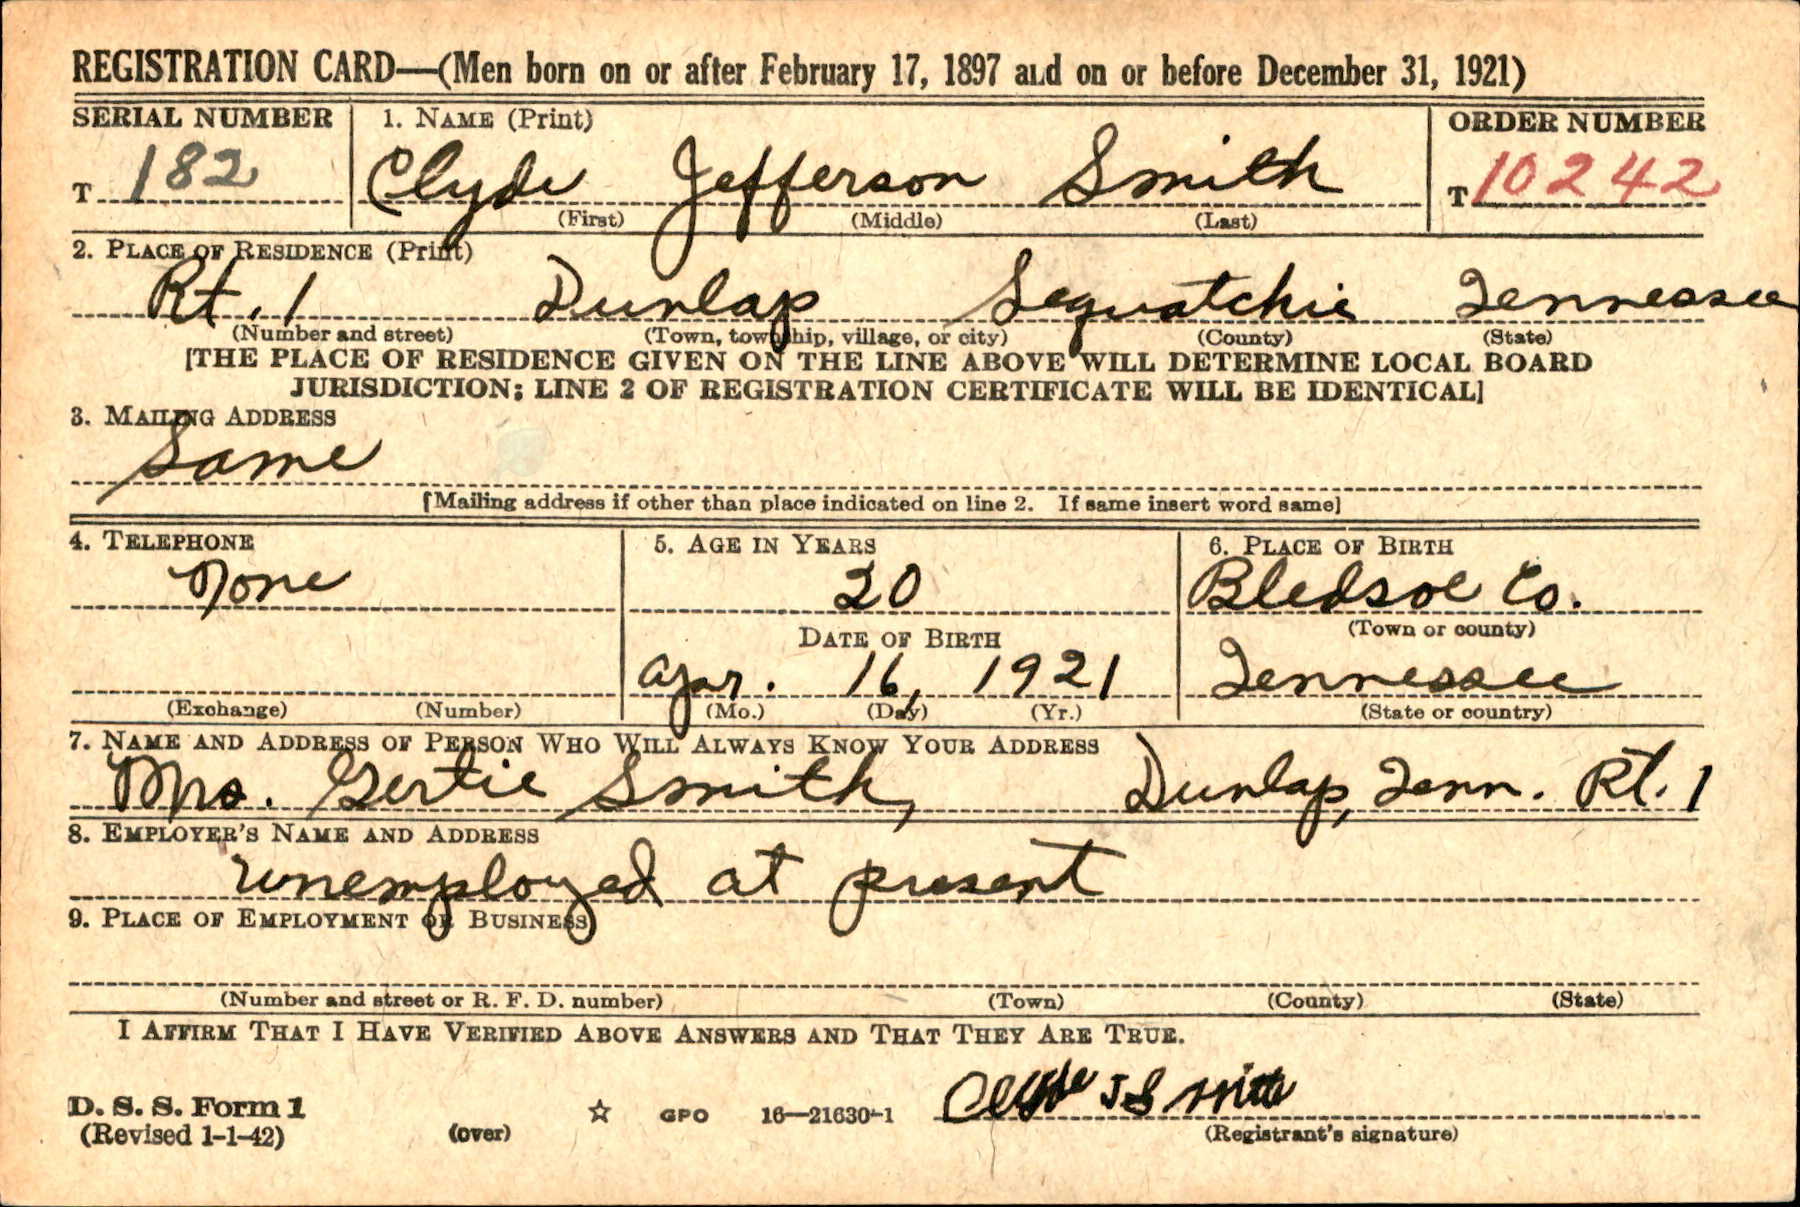 REGISTRATION CARD—(Men born on or after February 17, 1897 and on or before December 31, 1921)
SERIAL NUMBER 1. NAME (Print) ORDER NUMBER
T 182 Clyde Jefferson Smith T 10242
(First) (Middle) (Last)
2. PLACE OF RESIDENCE (Print)
Rt. 1 Dunlap Sequatchie Tennessee
(Number and street) (Town, township, village, or city) (County) (State)
[THE PLACE OF RESIDENCE GIVEN ON THE LINE ABOVE WILL DETERMINE LOCAL BOARD
JURISDICTION; LINE 2 OF REGISTRATION CERTIFICATE WILL BE IDENTICAL]
3. MAILING ADDRESS
Same
[Mailing address if other than place indicated on line 2. If same insert word same]
4. TELEPHONE 5. AGE IN YEARS 6. PLACE OF BIRTH
None 20 Bledsoe Co.
DATE OF BIRTH (Town or county)
Apr. 16, 1921 Tennessee
(Exchange) (Number) (Mo.) (Day) (Yr.) (State or country)
7. NAME AND ADDRESS OF PERSON WHO WILL ALWAYS KNOW YOUR ADDRESS
Mrs. Gertie Smith, Dunlap, Tenn. Rt. 1
8. EMPLOYER'S NAME AND ADDRESS
unemployed at present
9. PLACE OF EMPLOYMENT OR BUSINESS
(Number and street or R. F. D. number) (Town) (County) (State)
I AFFIRM THAT I HAVE VERIFIED ABOVE ANSWERS AND THAT THEY ARE TRUE.
Clyde J Smith
D. S. S. Form 1
(Revised 1-1-42) (over) ☆ GPO 16—21630-1 (Registrant's signature)